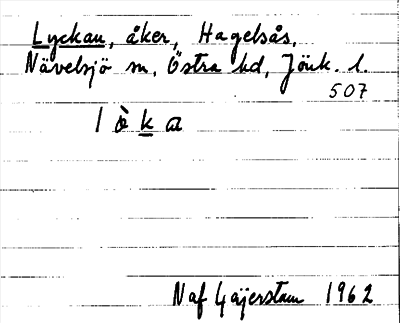 Lyckan, åker, Hagelsås.
Nävelsjö sn, Östra hd, Jönk. l.
507
l ò k a
Naf Gäijerstam 1962